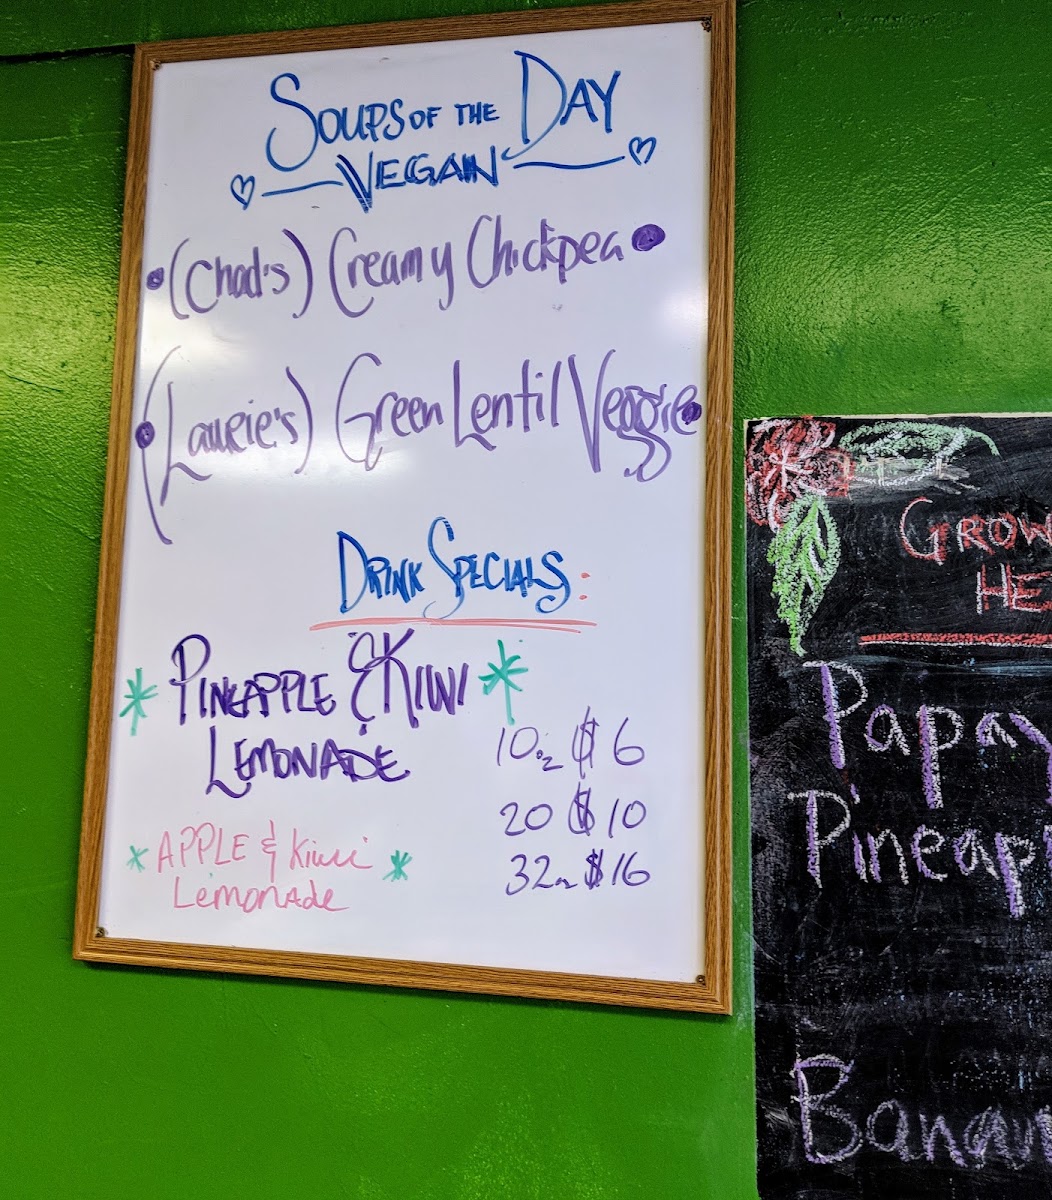 SOUPS OF THE DAY
VEGAN
(Chad's) Creamy Chickpea
(Laurie's) Green Lentil Veggie
DRINK SPECIALS:
PINEAPPLE & KIWI
LEMONADE
10oz $6
20 $10
32oz $16
APPLE & Kiwi
Lemonade
GROW
HE
Papay
Pineap
Banan